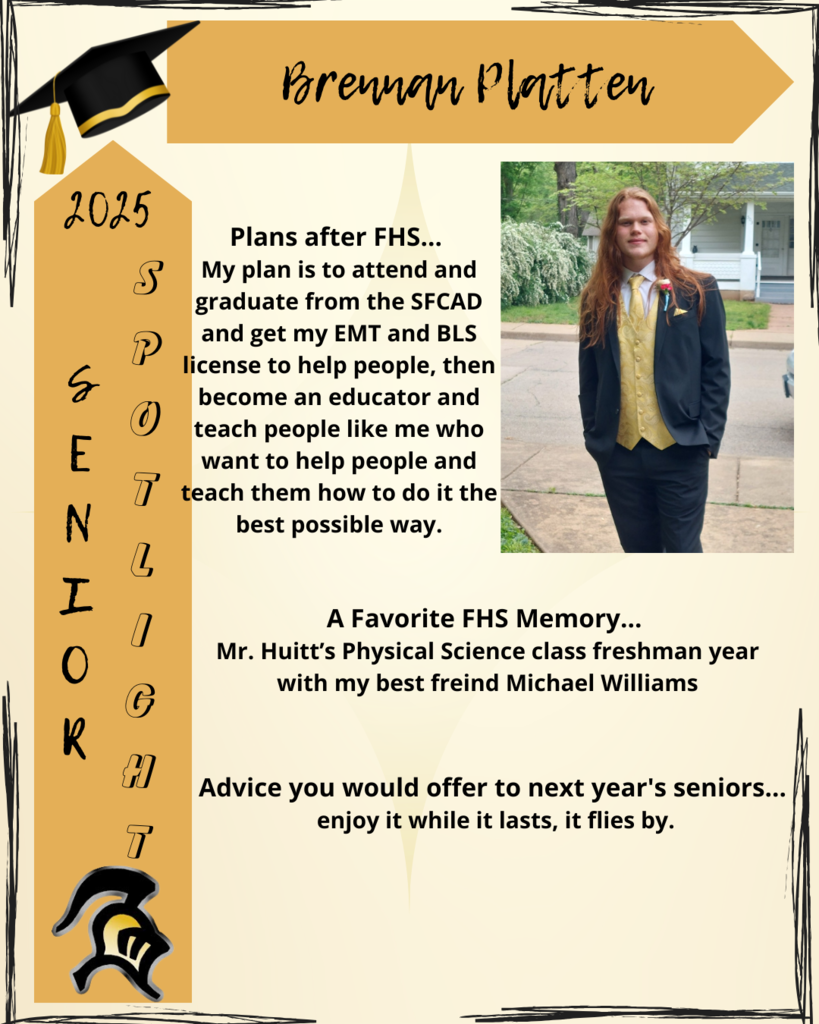 Brennan Platten
2025
SENIOR
SPOTLIGHT
Plans after FHS...
My plan is to attend and
graduate from the SFCAD
and get my EMT and BLS
license to help people, then
become an educator and
teach people like me who
want to help people and
teach them how to do it the
best possible way.
A Favorite FHS Memory...
Mr. Huitt’s Physical Science class freshman year
with my best freind Michael Williams
Advice you would offer to next year's seniors...
enjoy it while it lasts, it flies by.